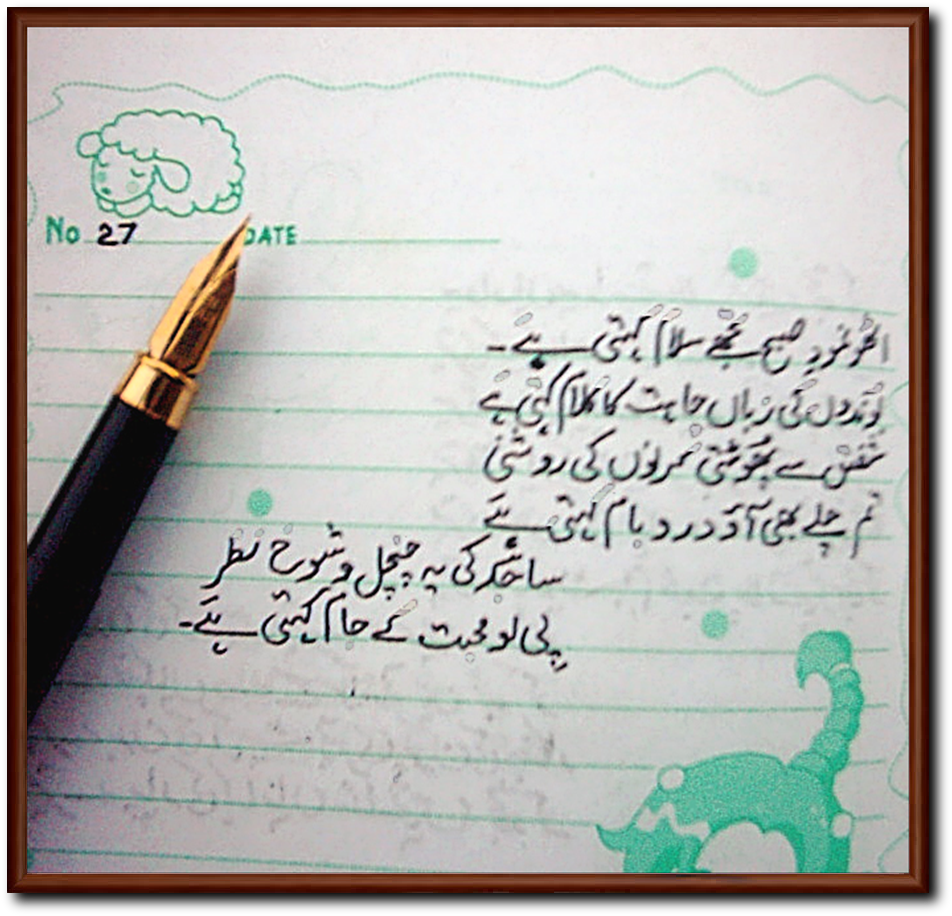 No 27 DATE
اٹھو نمودِ صبح تجھے سلام کہتی ہے۔
بوندوں کی زباں چاہت کا کلام کہتی ہے
شفق سے پھوٹتی کرنوں کی روشنی
تم چلے بھی آؤ در و بام کہتی ہے
ساحر کی یہ چنچل و شوخ نظر
پی لو محبت کے جام کہتی ہے۔